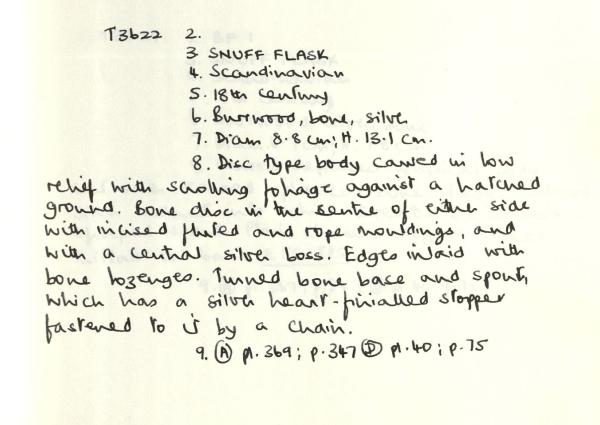 T3622 2.
3 SNUFF FLASK
4. Scandinavian
5. 18th century
6. Burrwood, bone, silver
7. Diam 8.8 cm; H. 13.1 cm.
8. Disc type body carved in low
relief with scrolling foliage against a hatched
ground. Bone disc in the centre of either side
with incised fluted and rope mouldings, and
with a central silver boss. Edges inlaid with
bone lozenges. Turned bone base and spout,
which has a silver heart-finialled stopper
fastened to it by a chain.
9. Ⓐ pl. 369; p. 347 Ⓓ pl. 40; p. 75